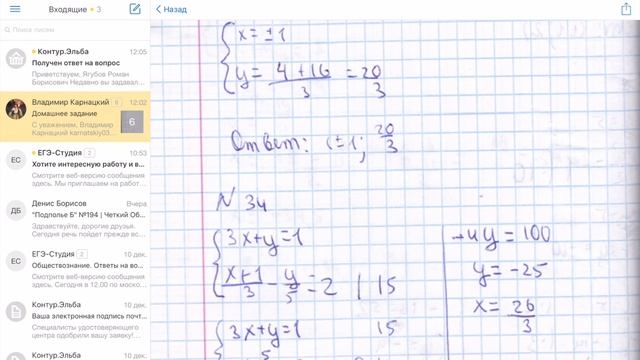 Входящие • 3
Назад
Поиск писем
Контур.Эльба
12:05
Получен ответ на вопрос
Приветствуем, Ягубов Роман
Борисович Недавно вы задавал...
Владимир Карнацкий 6
12:02
Домашнее задание
С уважением, Владимир
Карнацкий karnatskiy03...
6
ЕС
ЕГЭ-Студия 2
10:53
Хотите интересную работу и в...
Смотрите веб-версию сообщения
здесь. Мы приглашаем на работ...
ДБ
Денис Борисов
Вчера
"Подполье Б" №194 | Четкий Об...
Здравствуйте, дорогие друзья.
Сегодня речь пойдет прежде вс...
ЕС
ЕГЭ-Студия 2
10 дек.
Обществознание. Ответы на во...
Смотрите веб-версию сообщения
здесь. Сегодня в 12.00 по моско...
Контур.Эльба
10 дек.
Ваша электронная подпись почт...
Специалисты удостоверяющего
центра одобрили вашу заявку!...
Контур.Эльба
10 дек.
x = ±1
y = 4+16/3 = 20/3
Ответ: (±1; 20/3
N 34
3x+y=1
x+1/3 - y/5 = 2 | 15
3x+y=1 15
-4y = 100
y = -25
x = 26/3